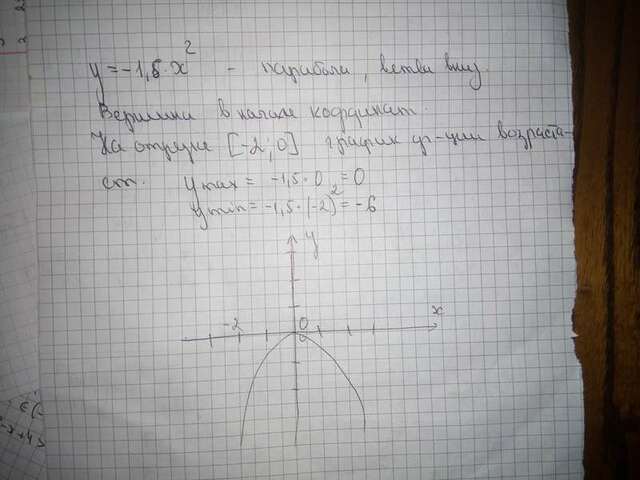 y = -1,5·x² - парабола, ветви вниз.
Вершина в начале координат.
На отрезке [-2; 0] график ф-ции возраста-
ет. ymax = -1,5·0 = 0
ymin = -1,5·(-2)² = -6
y
x
-2 0
0